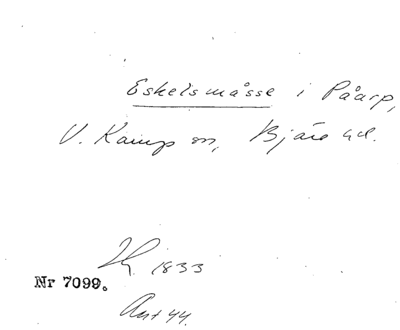 Eskelsmåsse i Påarp,
V. Karup sn, Bjäre hd.
1833
Nr 7099.
44.